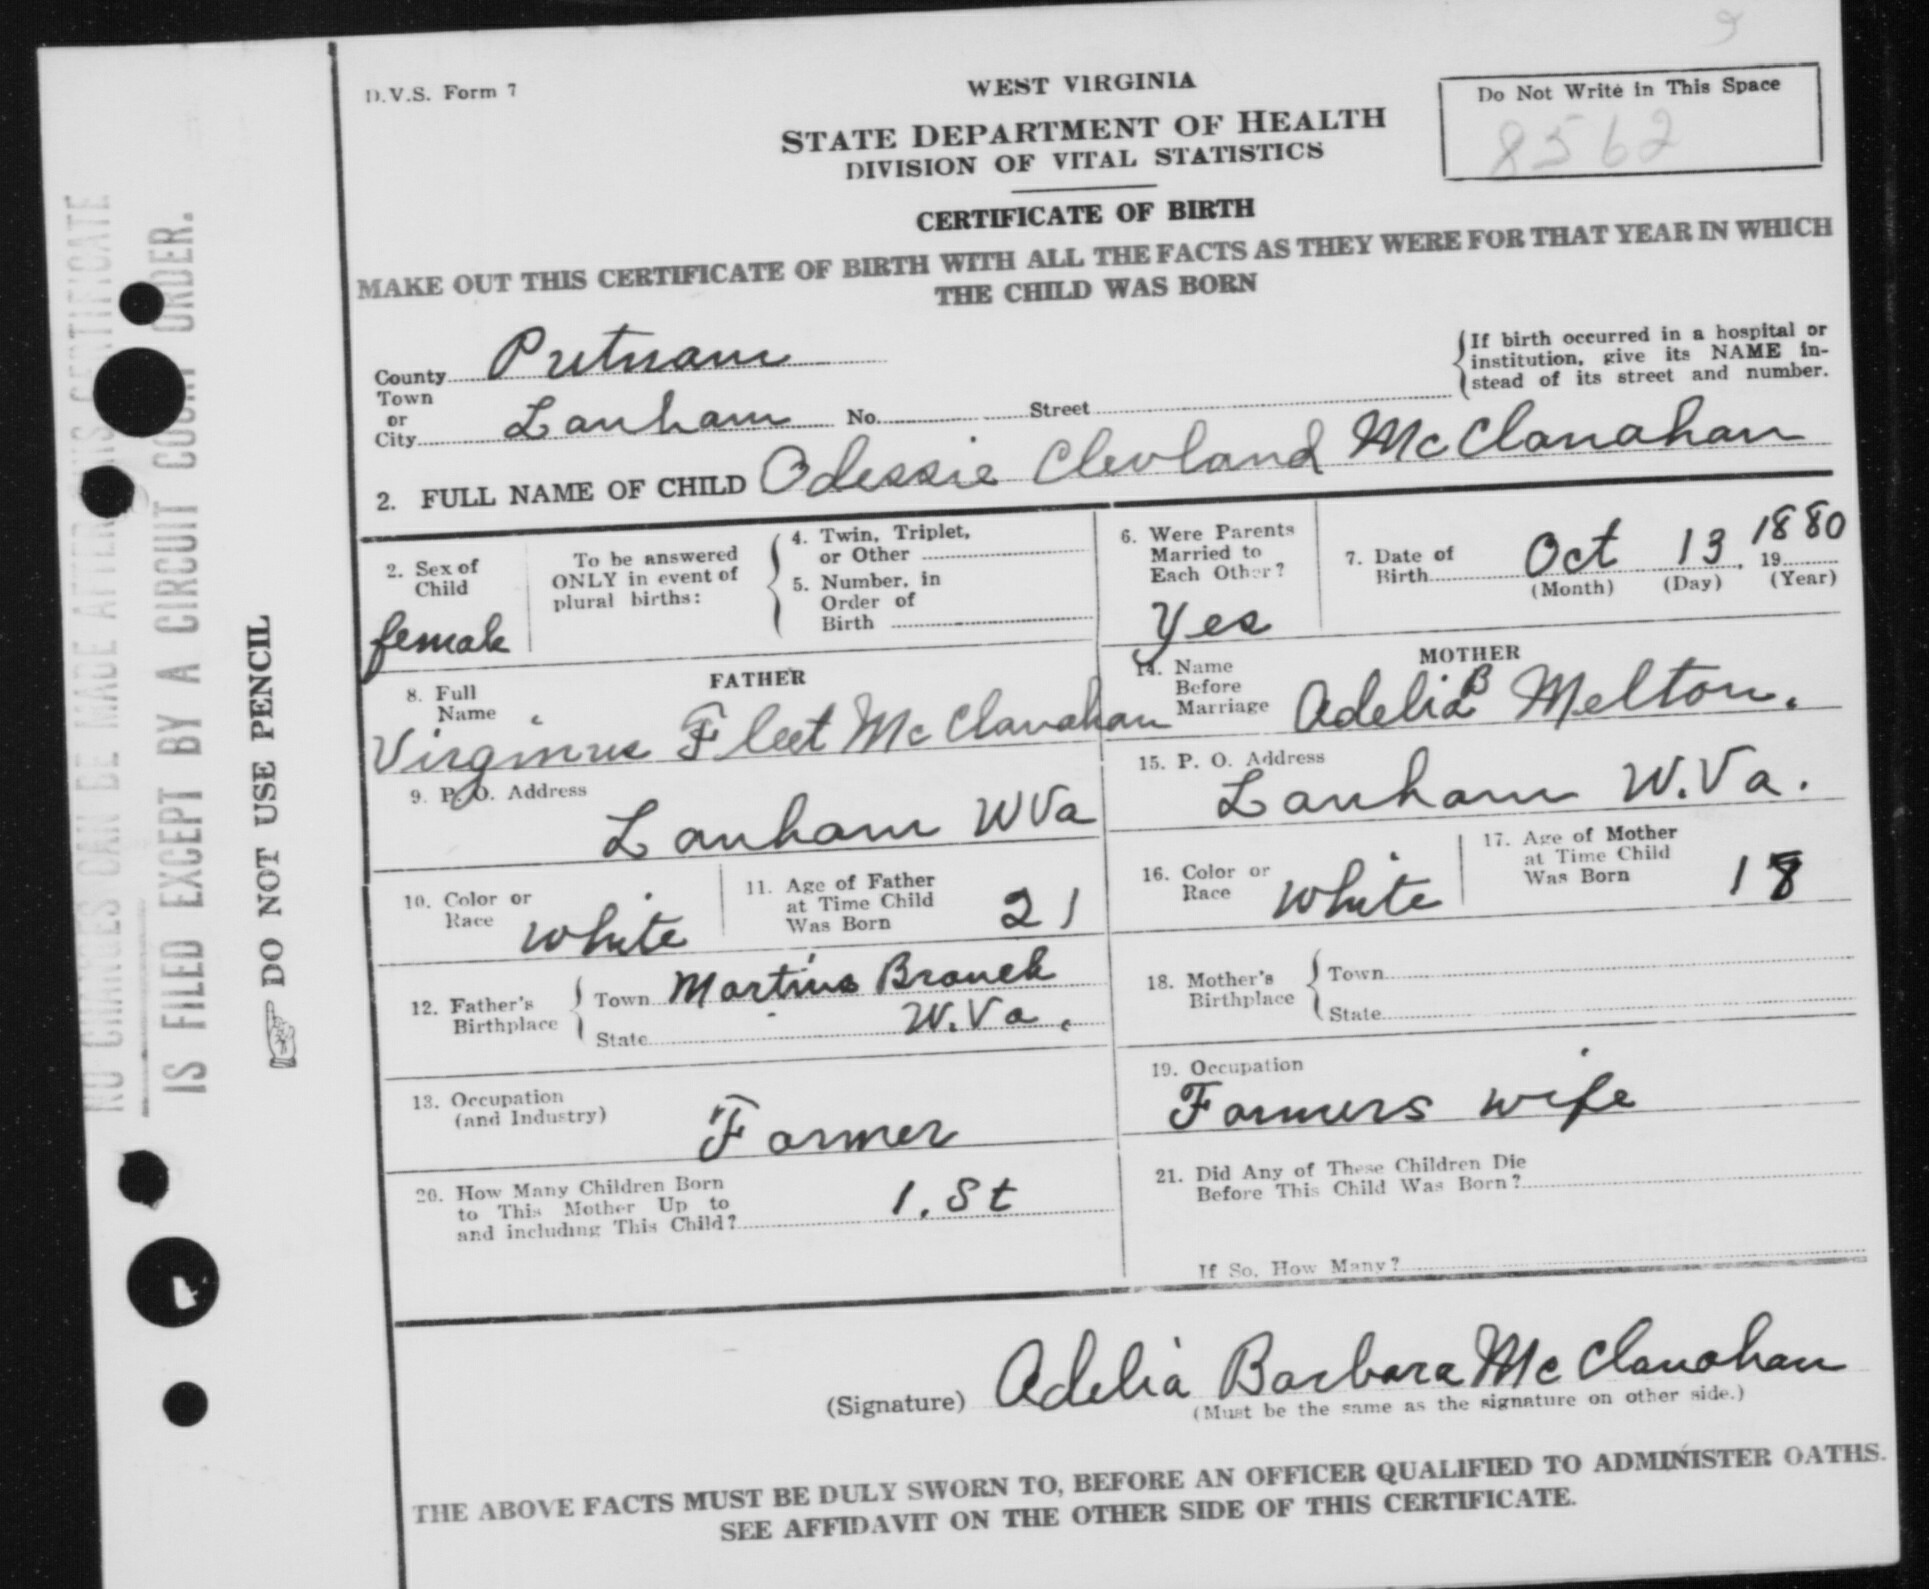 D.V.S. Form 7
WEST VIRGINIA
STATE DEPARTMENT OF HEALTH
DIVISION OF VITAL STATISTICS
Do Not Write in This Space
8562
CERTIFICATE OF BIRTH
MAKE OUT THIS CERTIFICATE OF BIRTH WITH ALL THE FACTS AS THEY WERE FOR THAT YEAR IN WHICH
THE CHILD WAS BORN
County Putnam
Town
or
City Lanham No. Street
If birth occurred in a hospital or
institution, give its NAME in-
stead of its street and number.
2. FULL NAME OF CHILD Odessie Clevland McClanahan
2. Sex of
Child
female
To be answered
ONLY in event of
plural births:
4. Twin, Triplet,
or Other
5. Number, in
Order of
Birth
6. Were Parents
Married to
Each Other?
Yes
7. Date of
Birth Oct 13, 19 1880
(Month) (Day) (Year)
FATHER
8. Full
Name
Virginius Fleet McClanahan
9. P. O. Address
Lanham W Va
10. Color or
Race white
11. Age of Father
at Time Child
Was Born 21
12. Father's
Birthplace
Town Martins Branch
State W.Va.
13. Occupation
(and Industry)
Farmer
20. How Many Children Born
to This Mother Up to
and including This Child? 1.St
MOTHER
14. Name
Before
Marriage Adelia B Melton.
15. P. O. Address
Lanham W.Va.
16. Color or
Race white
17. Age of Mother
at Time Child
Was Born 18
18. Mother's
Birthplace
Town
State
19. Occupation
Farmers wife
21. Did Any of These Children Die
Before This Child Was Born?
If So, How Many?
(Signature) Adelia Barbara McClanahan
(Must be the same as the signature on other side.)
THE ABOVE FACTS MUST BE DULY SWORN TO, BEFORE AN OFFICER QUALIFIED TO ADMINISTER OATHS.
SEE AFFIDAVIT ON THE OTHER SIDE OF THIS CERTIFICATE.
NO CHANGES CAN BE MADE AFTER THIS CERTIFICATE
IS FILED EXCEPT BY A CIRCUIT COURT ORDER.
DO NOT USE PENCIL